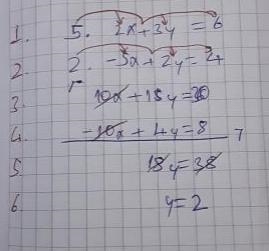 1. 5. 2x+3y = 6
2. 2. -5x+2y=4
3. 10x+15y=30
4. -10x+4y=8
5 19y=38
6 y=2